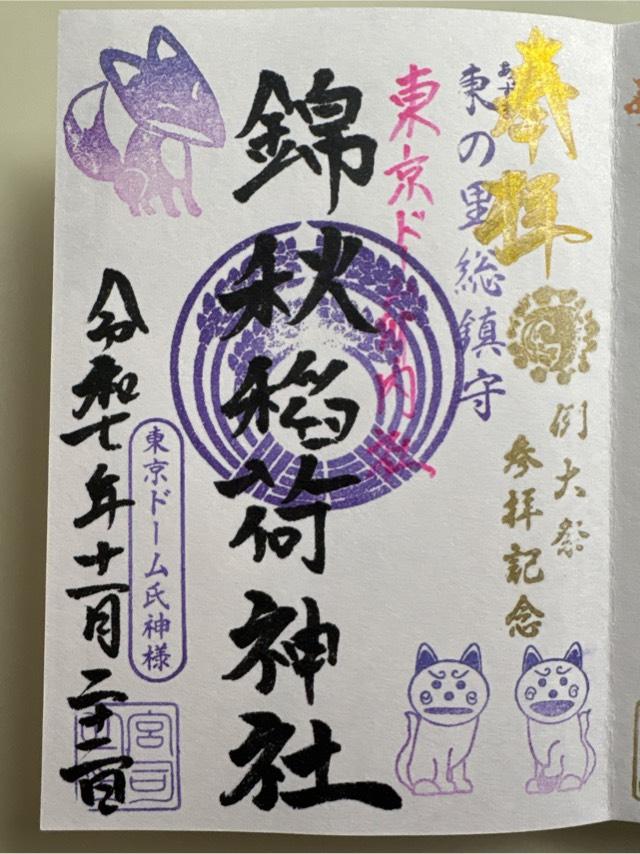 奉拝
例大祭
参拝記念
あずま
東の里総鎮守
東京ドーム
内社
錦秋稲荷神社
東京ドーム氏神様
令和七年十一月二十二日
宮司